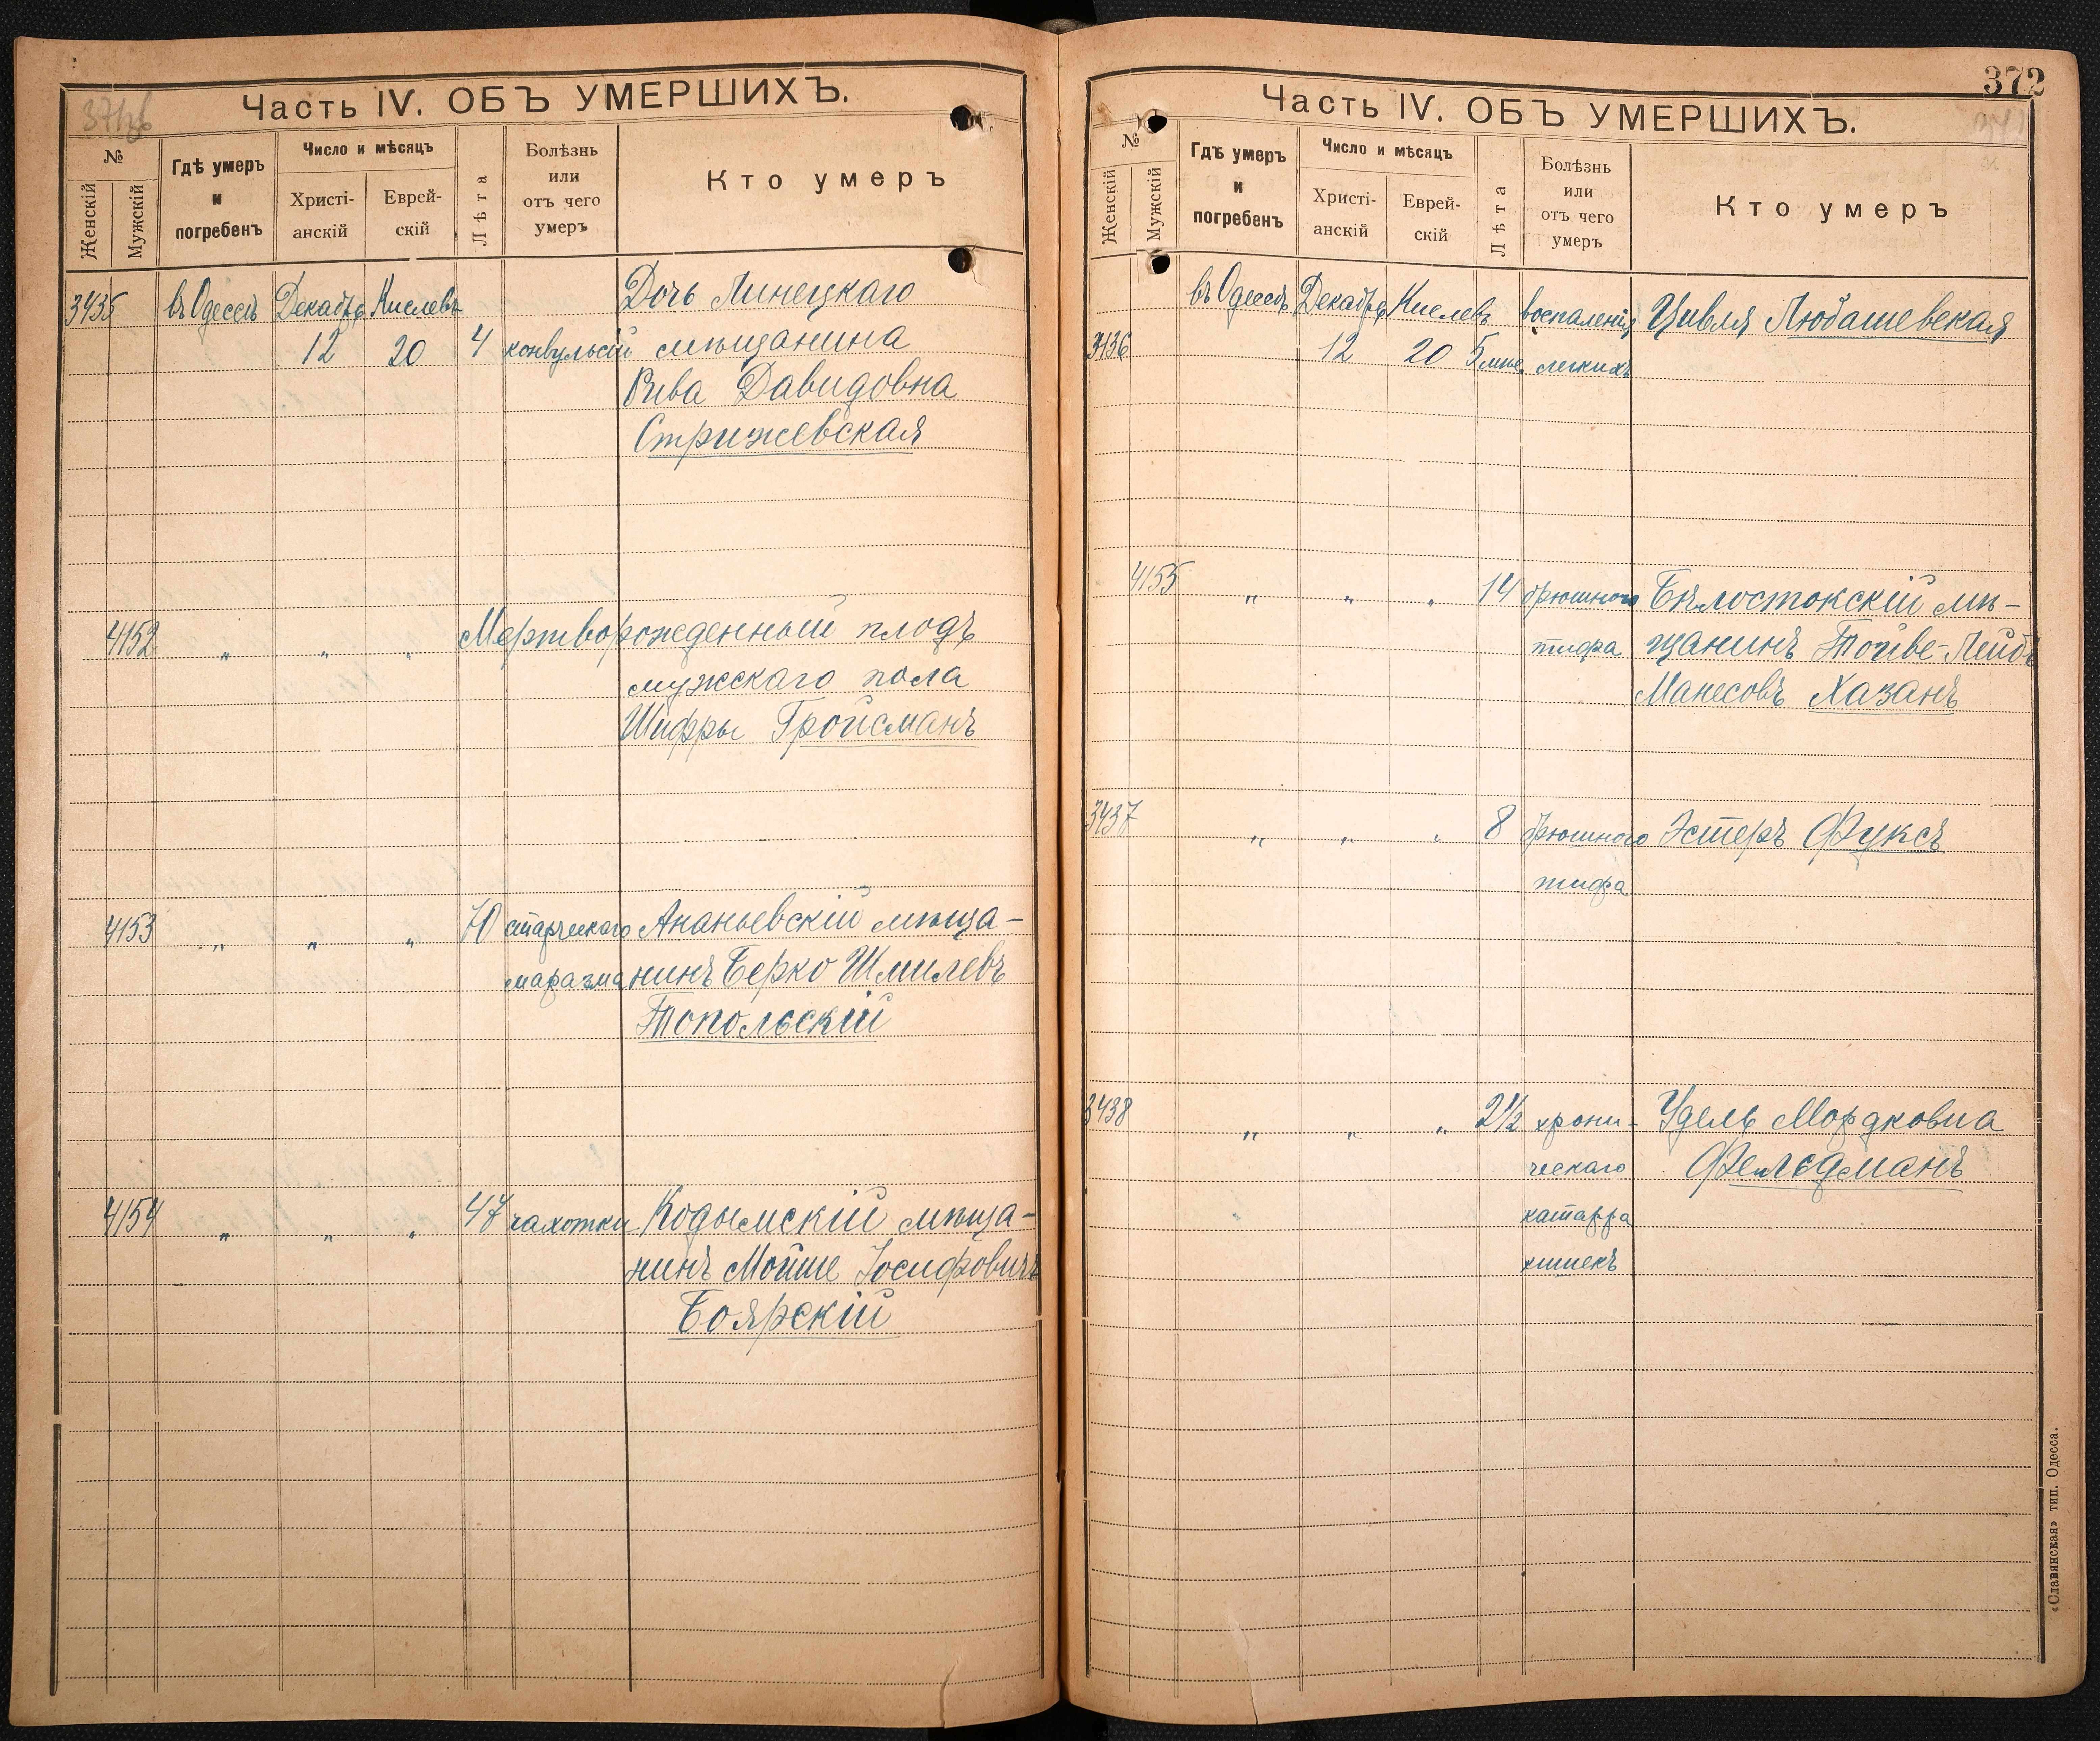 Часть IV. ОБЪ УМЕРШИХЪ.
№
Женскій
Мужскій
Гдѣ умеръ
и
погребенъ
Число и мѣсяцъ
Христі-
анскій
Еврей-
скій
Лѣта
Болѣзнь
или
отъ чего
умеръ
Кто умеръ
3435 въ Одессѣ Декабрь Кислевъ Дочь Линецкаго
12 20 4 конвульсій мѣщанина
Рива Давидовна
Стрижевская
4152 „ „ „ Мертворожденный плодъ
мужскаго пола
Шифры Гройсманъ
4153 „ „ „ 70 старческаго Ананьевскій мѣща-
маразма нинъ Берко Шмилевъ
Топольскій
4154 „ „ „ 47 чахотки Кодымскій мѣща-
нинъ Мойше Іосифовичъ
Боярскій
372
Часть IV. ОБЪ УМЕРШИХЪ.
№
Женскій
Мужскій
Гдѣ умеръ
и
погребенъ
Число и мѣсяцъ
Христі-
анскій
Еврей-
скій
Лѣта
Болѣзнь
или
отъ чего
умеръ
Кто умеръ
въ Одессѣ Декабрь Кислевъ воспаленія Цивля Любашевская
3436 12 20 5 мѣс. легкихъ
4155 „ „ „ 14 брюшного Бѣлостокскій мѣ-
тифа щанинъ Тойве-Лейбъ
Манесовъ Хазанъ
3437 „ „ „ 8 брюшного Эстеръ Фуксъ
тифа
3438 „ „ „ 2½ хрони- Удель Мордковна
ческаго Фельдманъ
катарра
кишекъ
«Славянская» тип. Одесса.